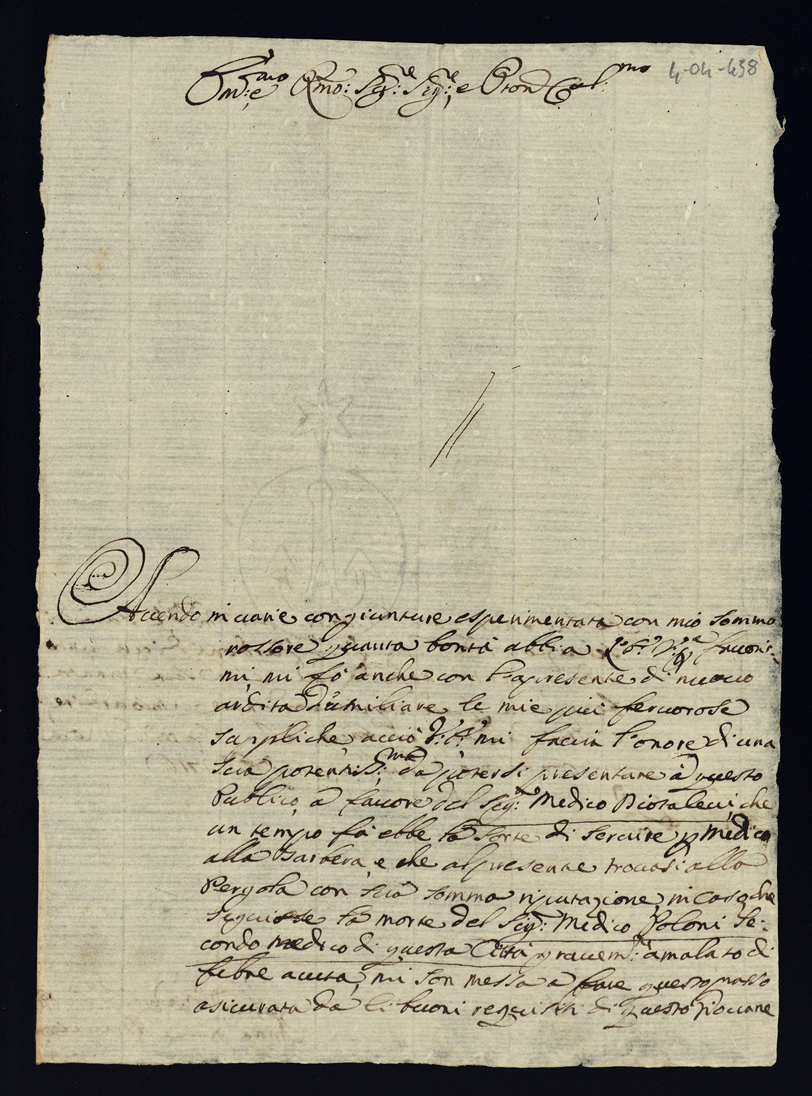 4-04-438
Em:e Rmo: Sig:re Sig:re, e Pron Col:mo
Avendo in varie congiunture esperimentata con mio sommo
rossore quanta bontà abbia
mi, mi fò anche con la presente di nuovo
ardita d'umiliare le mie più fervorose
suppliche acciò mi faccia l'onore di una
sua potentiss:ma da potersi presentare à questo
Publico, à favore del Sig:re Medico Diotalevi, che
un tempo fà ebbe la sorte di servire p Medico
alla Barbera, e che al presente trovasi alla
Pergola con sua somma riputazione, in caso che
seguisse la morte del Sig:re Medico Poloni Se-
condo medico di questa Città gravem:te amalato di
febre acuta, mi son messa a fare questo passo
asicurata da li buoni requisiti di questo Giovane